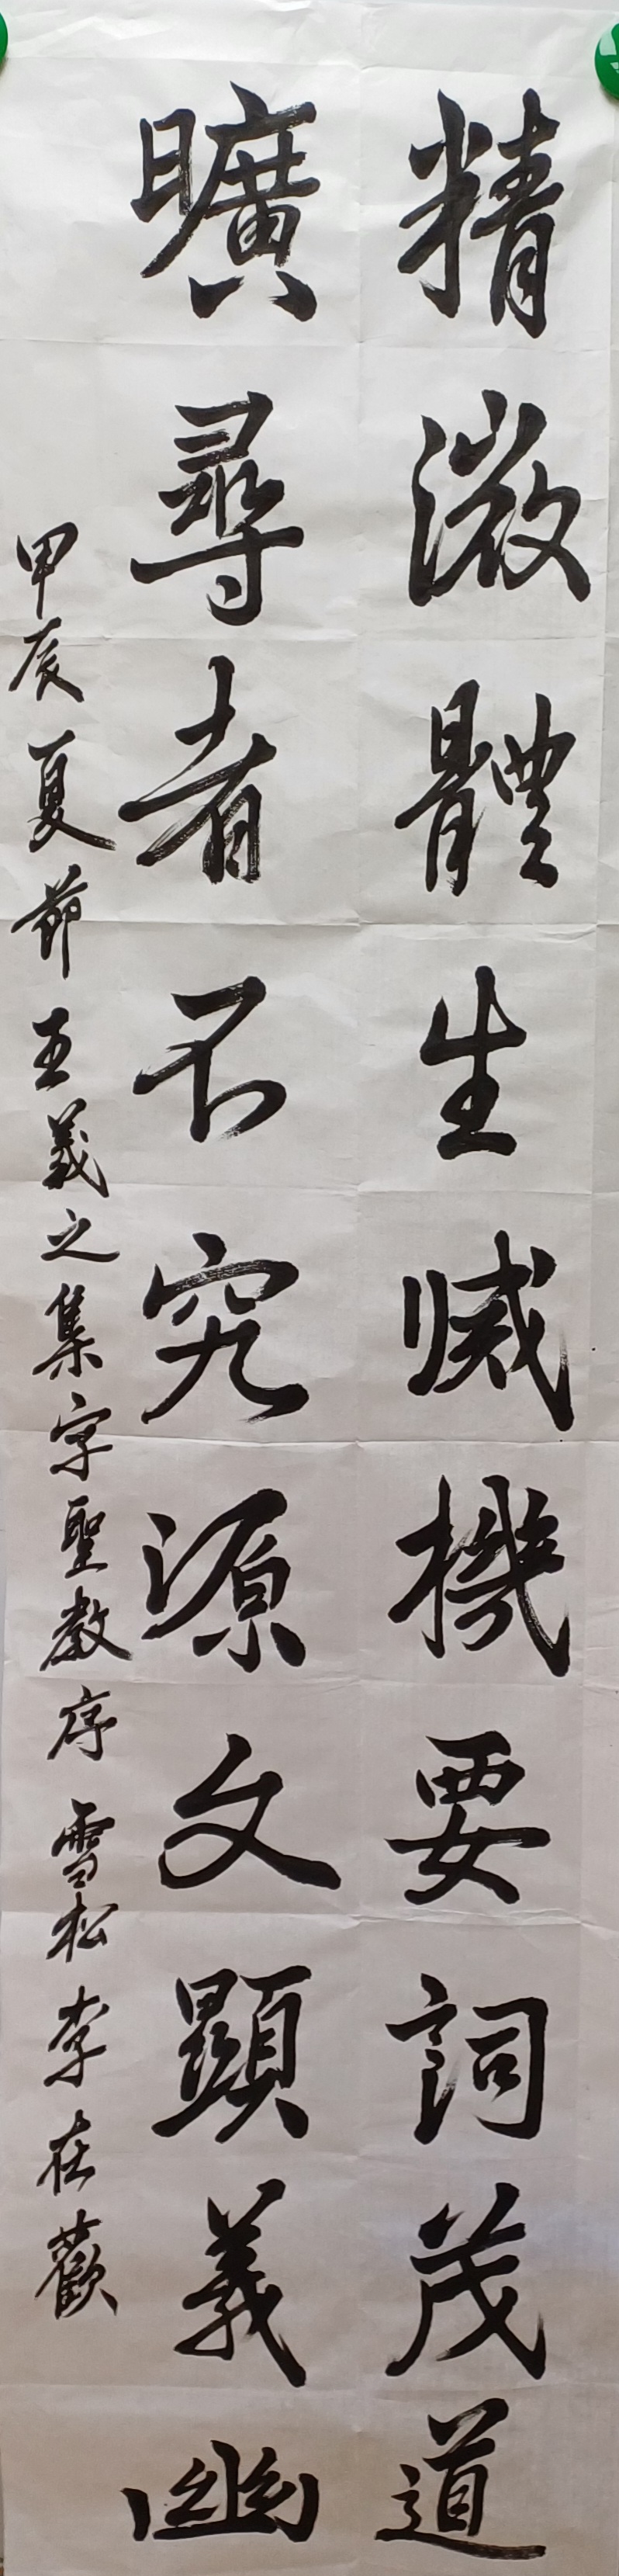 精微體生滅機要詞茂道
曠尋者不究源文顯義幽
甲辰夏節王羲之集字聖教序雪松李在歡